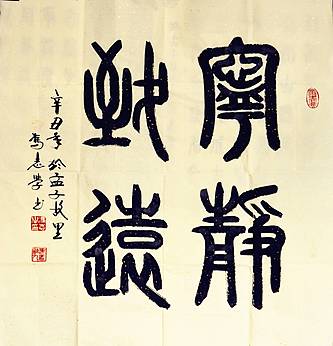 寧靜
致遠
辛丑年於孟子故里
馬志學书